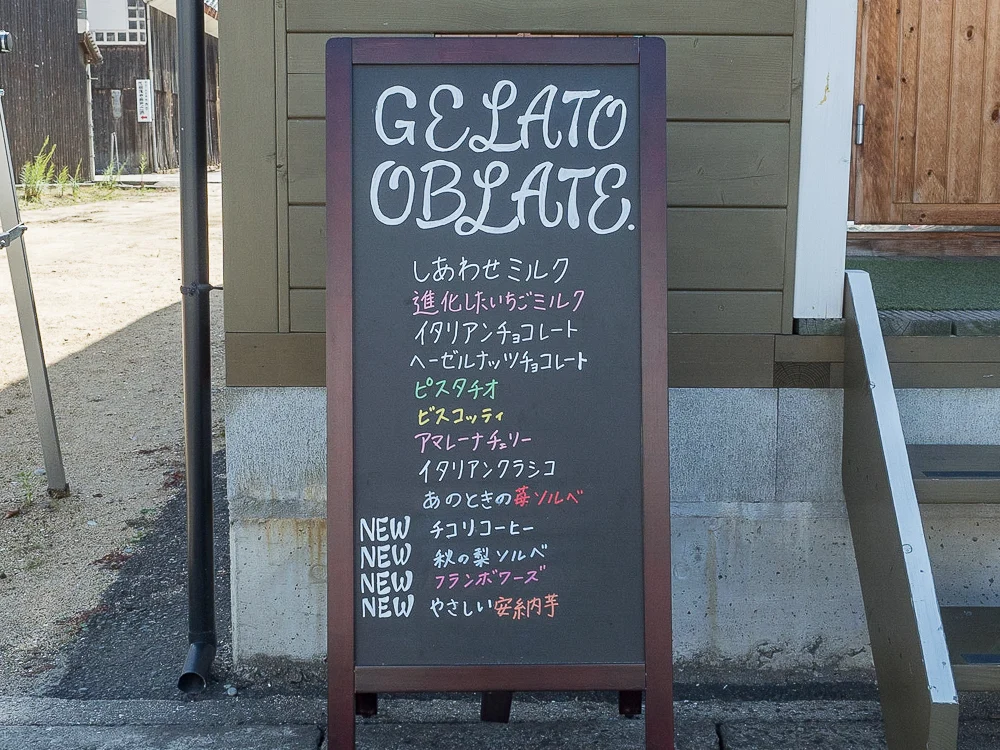 GELATO
OBLATE.
しあわせミルク
進化したいちごミルク
イタリアンチョコレート
ヘーゼルナッツチョコレート
ピスタチオ
ビスコッティ
アマレーナチェリー
イタリアンクラシコ
あのときの苺ソルベ
NEW チコリコーヒー
NEW 秋の梨ソルベ
NEW フランボワーズ
NEW やさしい安納芋